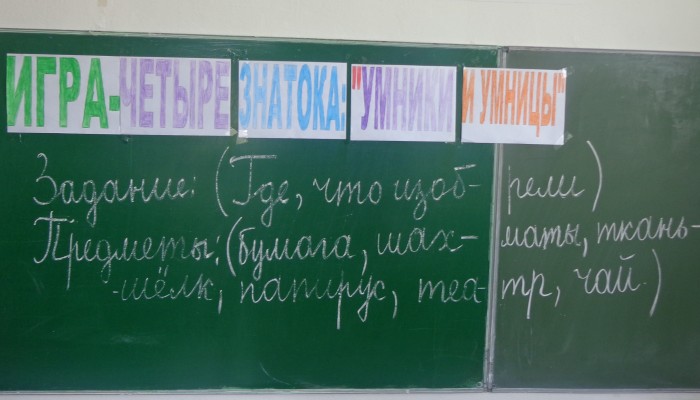 ИГРА-ЧЕТЫРЕ ЗНАТОКА: "УМНИКИ И УМНИЦЫ"
Задание: (Где, что изоб- рели)
Предметы: (бумага, шах- маты, ткань-
-шёлк, папирус, теа- тр, чай.)